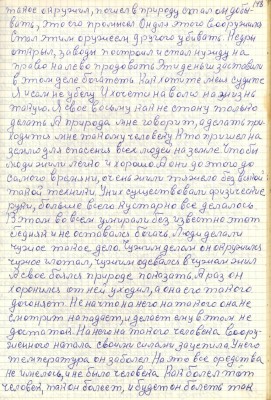 148
такое окружил, пошел в природу стал он добы-
вать, это его промысел. Он для этого вооружился
Стал этим оружием другого убивать. Недра
открыл, заводы построил и стал нужду на
право налево продавать. Эти деньги заставили
в этом деле богатеть. Как хотите меня судите
Я и сам не убегу. И хочете на волю на жизнь
такую. Я свое возьму как не стану только
делать. А природа мне говорит, а делать при
ходится мне такому человеку. Кто пришел на
землю для спасения всех людей на земле. Чтобы
люди жили легко и хорошо. А они до этого до
самого времени, очень жили тяжело без всякой
такой техники. У них существовали физические
руки, больше всего кустарно все делалось.
В этом во всем умирали без известно этот
бедняк и не оставался богач. Люди делали
чужое такое дело. Чужим делам он окружился
чужое глотал, чужим одевался в чужом жил
и свое боялся природе показать. А раз он
хоронился от ней уходил, а она его такого
догоняет. Ни на что на него на такого она не
смотрит нападает, и делает ему в этом не
достаток. На него на такого человека воору-
женного напала своими силами зацепила. У него
температура он заболел. На это все средства
не имелось, и не было человека. Как болел этот
человек, так он болеет, и будет он болеть так